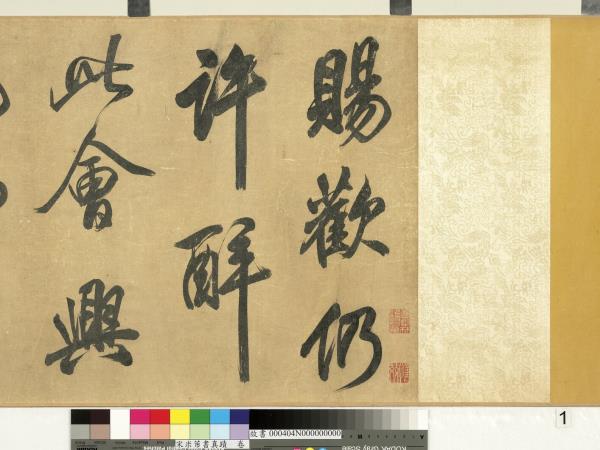 賜歡仍
許醉
此會興
1
故書 000404N000000000
宋米芾書真蹟 卷
KODAK Gray Scale